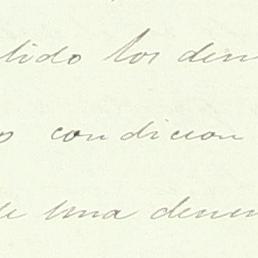 lido los dem
o condicion
de una demen